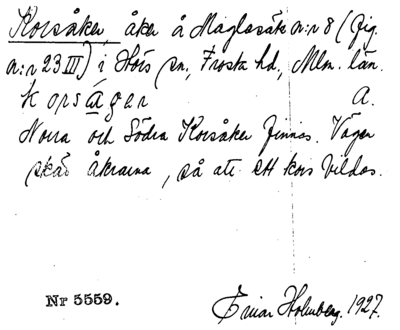 Korsåker, åker å Maglasäte n:r 8 (fig.
n:r 23 III) i Hörs sn, Frosta hd, Mlm. län.
korsågər A.
Norra och Södra Korsåker finnas. Vägen
skär åkrarna, så att ett kors bildas.
Nr 5559.
Einar Holmberg. 1927.